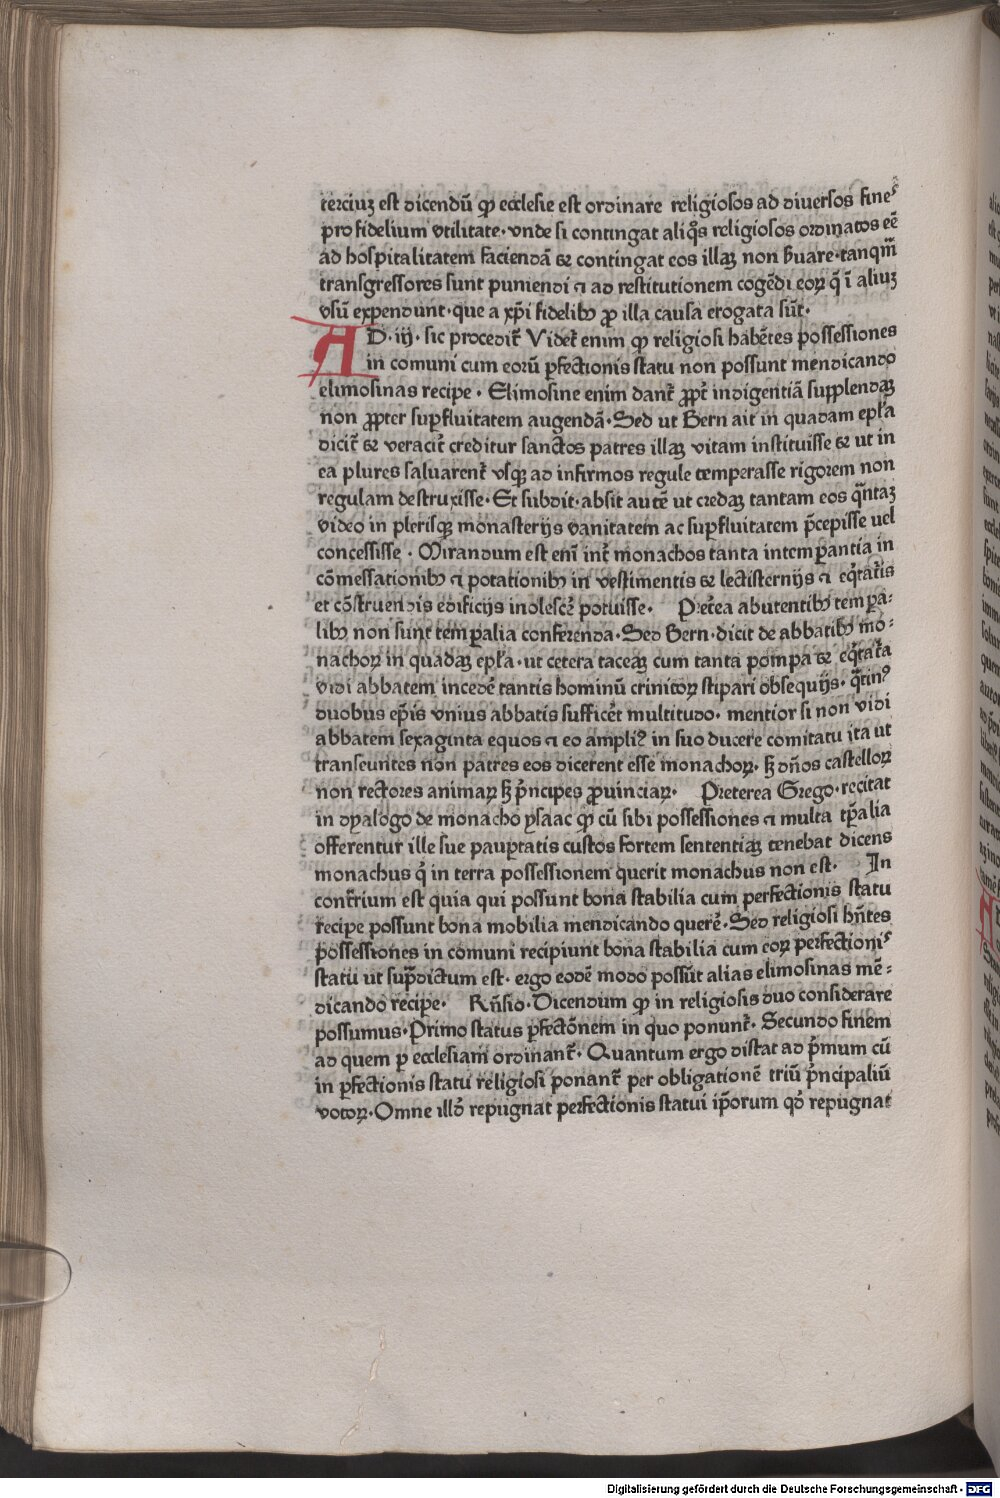 terciuꝫ est dicendū ꝙ ecclesie est ordinare religiosos ad diuersos fineˢ
pro fidelium vtilitate·vnde si contingat aliq̊s religiosos ordinatos eē
ad hospitalitatem faciendā & contingat eos illaꝫ non ẜuare·tanqm̄
transgressores sunt puniendi ⁊ ad restitutionem cogēdi eoꝝ q̇ ī aliuꝫ
vsū expendunt·que a xp̄i fidelibꝫ ꝓ illa causa erogata sūt·
AD·iij·sic procedit᷑ Videt᷑ enim ꝙ religiosi habētes possessiones
in comuni cum eorū ꝑfectionis statu non possunt mendicando
elimosinas recipe· Elimosine enim dant᷑ ꝓpt᷑ indigentiā supplendaꝫ
non ꝓpter suꝑfluitatem augendā·Sed ut Bern ait in quadam epl̄a
dicit᷑ & veracit᷑ creditur sanctos patres illaꝫ vitam instituisse & ut in
ea plures saluarent᷑ vsqꝫ ad infirmos regule temperasse rigorem non
regulam destruxisse·Et subdit·absit autē ut credaꝫ tantam eos qn̄taꝫ
video in plerisqꝫ monasterijs vanitatem ac suꝑfluitatem p̄cepisse uel
concessisse· Mirandum est enī int᷑ monachos tanta intemꝑantia in
cōmessationibꝫ ⁊ potationibꝫ in vestimentis & lectisternijs ⁊ eq̇tat᷑is
et cōstruendis edificijs inolesce᷑ potuisse· Pret᷑ea abutentibꝫ temꝑa⸗
libꝫ non sunt temꝑalia conferenda·Sed Bern·dicit de abbatibꝫ mo⸗
nachoꝝ in quadaꝫ epl̄a·ut cetera taceaꝫ cum tanta pompa & eq̇tat᷑a
vidi abbatem incede᷑ tantis hominū crinitoꝝ stipari obsequijs·q̄tinꝰ
duobus ep̄is vnius abbatis suffice᷑t multitudo·mentior si non vidi
abbatem sexaginta equos ⁊ eo ampliꝰ in suo ducere comitatu ita ut
transeuntes non patres eos dicerent esse monachoꝝ·ꞩꝫ dn̄os castelloꝝ
non rectores animaꝝ ꞩꝫ p̄ncipes ꝓuinciaꝝ· Preterea Grego·recitat
in dyalogo de monacho ysaac ꝙ cū sibi possessiones ⁊ multa tꝑalia
offerentur ille sue pauꝑtatis custos fortem sententiaꝫ tenebat dicens
monachus q̇ in terra possessionem querit monachus non est· In
contr̄ium est quia qui possunt bona stabilia cum perfectionis statu
recipe possunt bona mobilia mendicando quere᷑·Sed religiosi hn̄tes
possessiones in comuni recipiunt bona stabilia cum eoꝝ perfectioniˢ
statu ut supͣdictum est·ergo eodē modo possūt alias elimosinas mē⸗
dicando recipe· Rn̄sio·Dicendum ꝙ in religiosis duo considerare
possumus·Primo status ꝑfectōnem in quo ponunt᷑·Secundo finem
ad quem ꝑ ecclesiam ordinant᷑·Quantum ergo distat ad p̄mum cū
in ꝑfectionis statu religiosi ponant᷑ per obligationē triū p̄ncipaliū
votoꝝ·Omne illd̄ repugnat perfectionis statui ip̄orum qd̄ repugnat
Digitalisierung gefördert durch die Deutsche Forschungsgemeinschaft · DFG